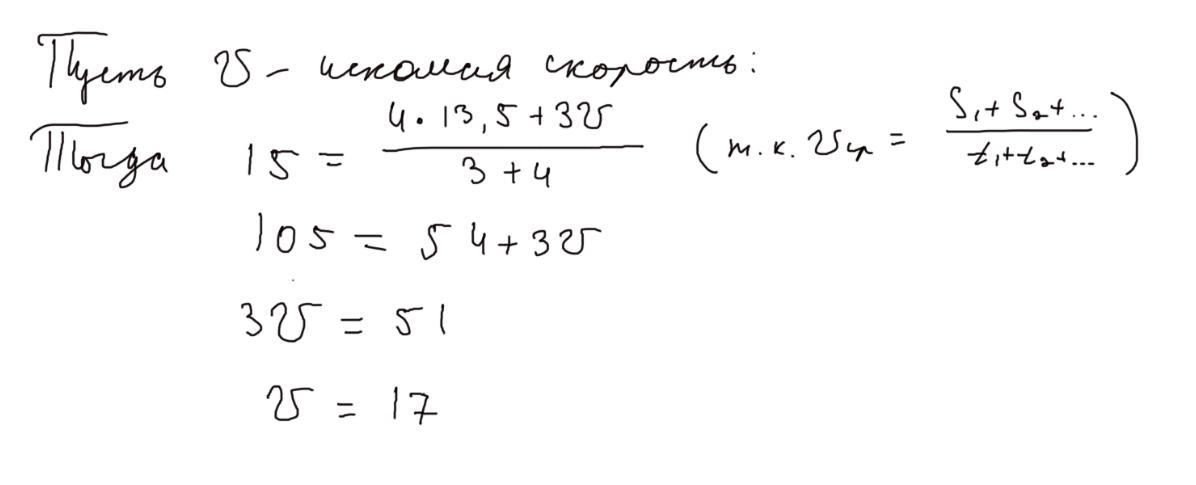 Пусть v – искомая скорость:
Тогда 15 = (4·13,5+3v)/(3+4) (т.к. vср = (S₁+S₂+...)/(t₁+t₂+...))
105 = 54+3v
3v = 51
v = 17